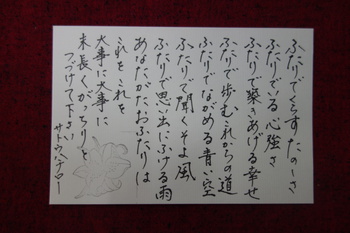 ふたりでくらすたのしさ
ふたりでいる心強さ
ふたりで築きあげる幸せ
ふたりで歩むこれからの道
ふたりでながめる青い空
ふたりで聞くそよ風
ふたりで思い出にふける雨
あなたがたおふたりは
これを これを
大事に大事に
末長くがっちりと
つづけて下さい
サトウハチロー